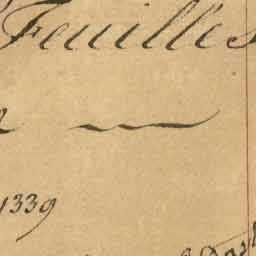 Feuilles
1339